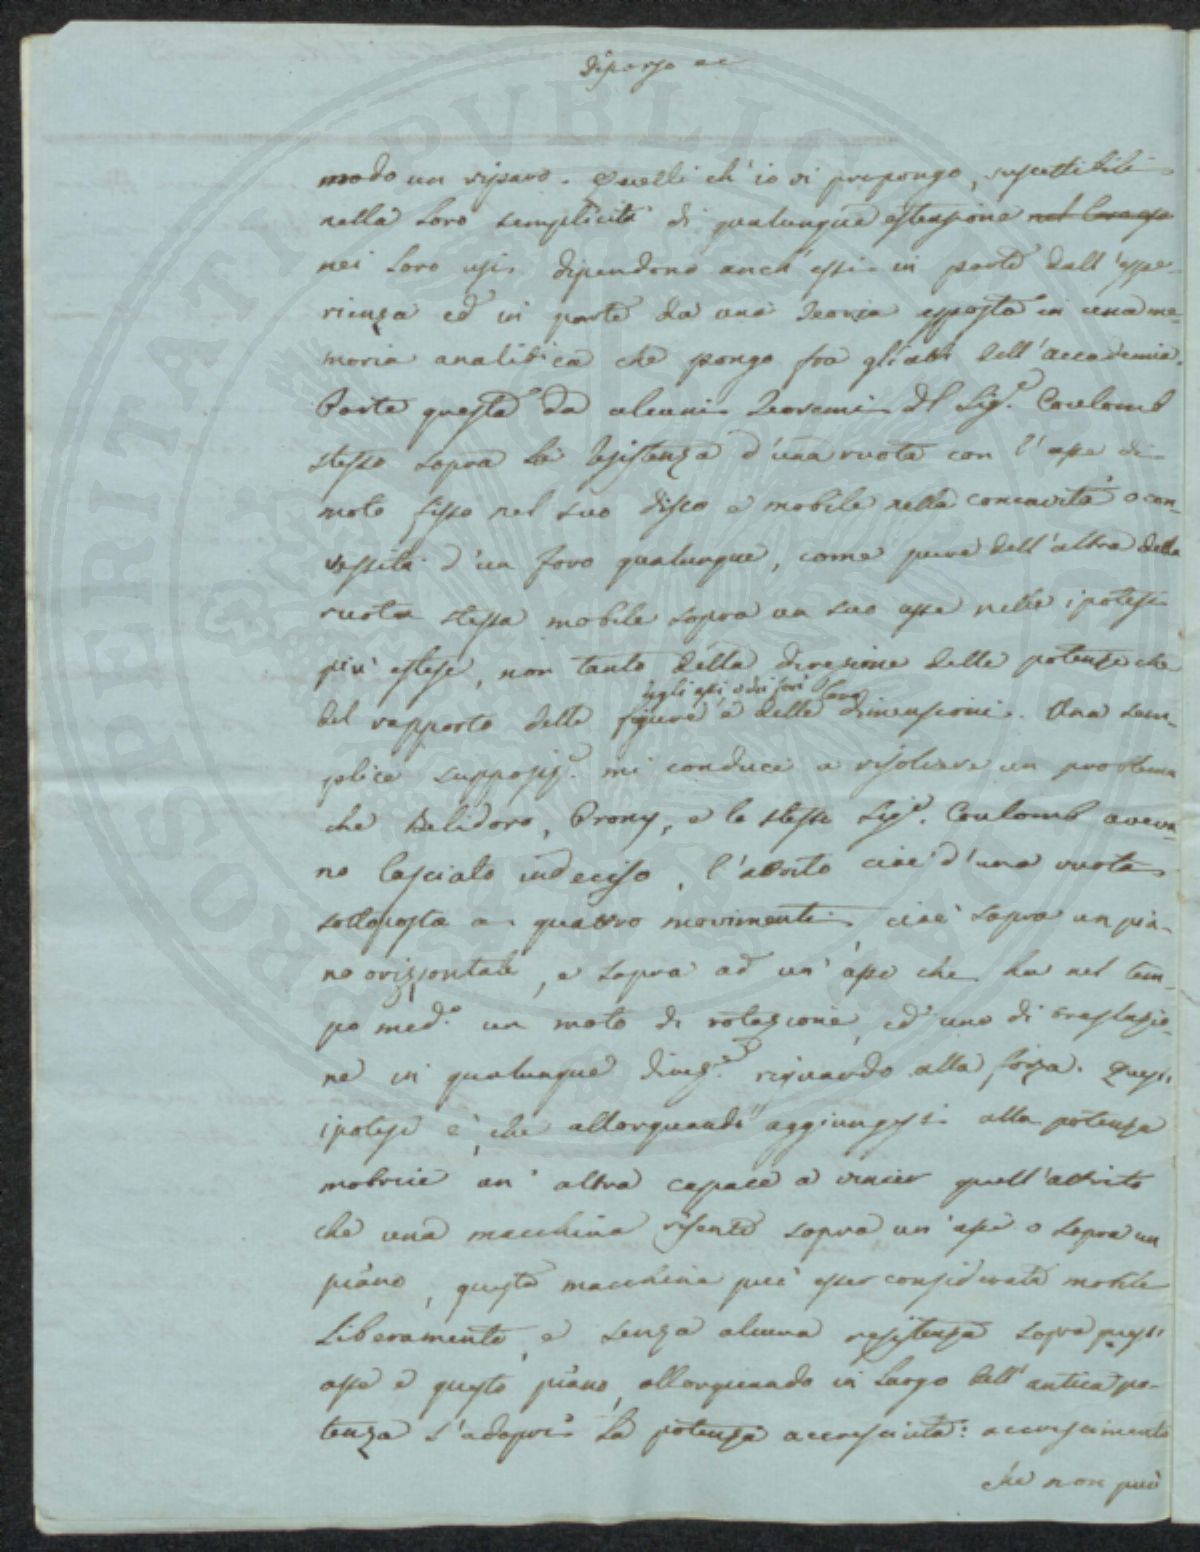 modo un riparo. Quelli ch'io vi propongo, suscettibili
nella loro semplicità di qualunque estensione
nei loro usi dipendono anch'essi in parte dall'espe-
rienza ed in parte da una Teoria esposta in una me-
moria analitica che pongo fra gli atti dell'accademia.
Parte questa da alcuni Teoremi del Sig.r Coulomb
stesso sopra la resistenza d'una ruota con l'asse di
moto fisso nel suo disco e mobile nella concavità o con-
vessità d'un foro qualunque, come pure dell'altra della
ruota stessa mobile sopra un suo asse nelle ipotesi
più estese, non tanto della direzione delle potenze che
degli assi, o dei fori loro
del rapporto delle figure e delle dimensioni. Una sem-
plice supposiz.e mi conduce a risolvere un problema
che Belidoro, Prony, e lo stesso Sig.r Coulomb aveva-
no lasciato indeciso, l'attrito cioè d'una ruota
sottoposta a quattro movimenti cioè sopra un pia-
no orizzontale, e sopra ad un'asse che ha nel tem-
po med.o un moto di rotazione, ed uno di traslazio-
ne in qualunque direz.e riguardo alla forza. Quest
ipotesi è, che allorquando aggiungesi alla potenza
motrice un'altra capace a vincer quell'attrito
che una macchina risente sopra un'asse o sopra un
piano, questa macchina può esser considerata mobile
liberamente, e senza alcuna resistenza sopra quest
asse e questo piano, allorquando in luogo dell'antica po-
tenza s'adopri la potenza accresciuta: accrescimento
che non può